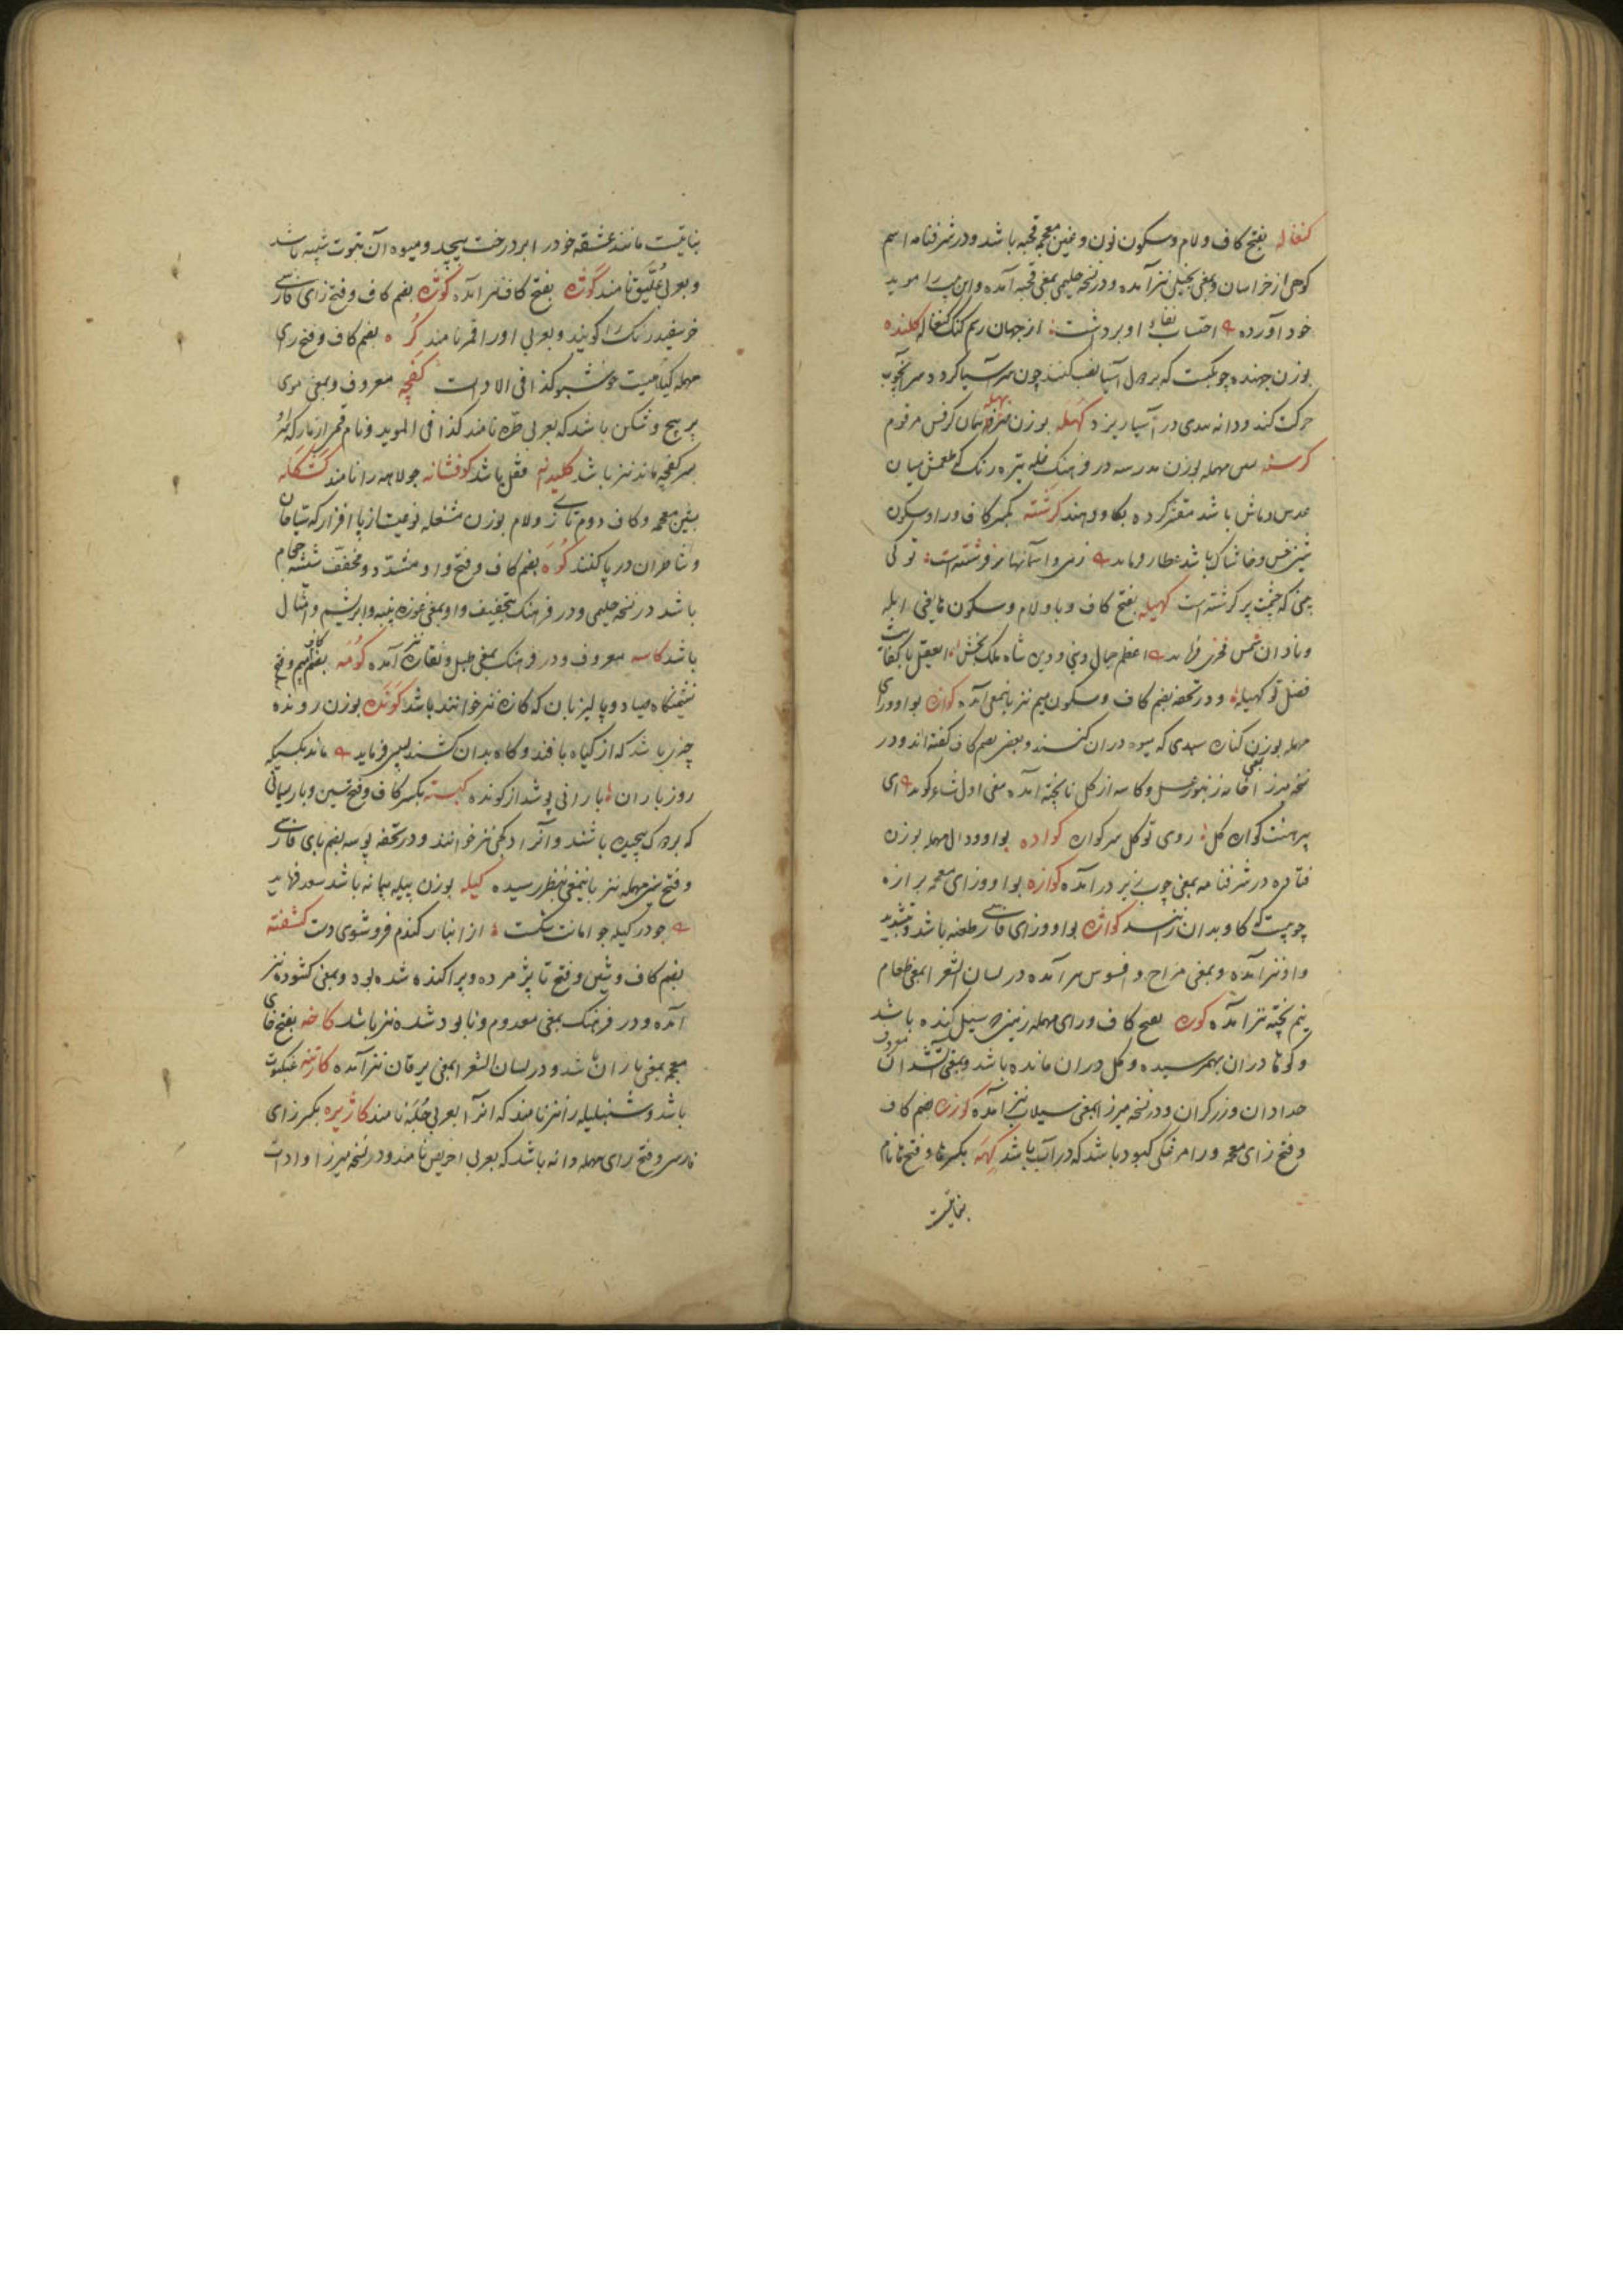 کنغاله بفتح کاف و لام و سکون نون و غین معجمه قحبه باشد و در شرفنامه اسم
کوهی از خراسان و بمعنی بخیل نیز آمده و در نسخه حلیمی بمعنی قحبه آمده و این بیت را موید
خود آورده احتساب او برداشت از جهان رسم کنک کنغاله کلنده
بوزن جهنده چوبکیست که بر دل آسیا نصب کنند چون سر آسیا کردد سر آنچوب
حرکت کند و دانه در آسیا ریزد کهله بوزن بهله همان کرفس مرقوم
کرسنه مهمله بوزن مدرسه در فرهنک غله تیره رنک که طعمش میان
عدس و ماش باشد مقشر کرده بکاو دهند کرشته بکسر کاف و را و سکون
شین خس و خاشاک باشد عطار فرماید زمین و آسمانها پر فرشته است تو کی
بینی که چشمت پر کرشته است کهیله بفتح کاف و با و لام و سکون ها یعنی ابله
و نادان شمس فخری فرماید اعظم جمال دنیی و دین شاه ملک بخش ای عقل با کفایت
فضل تو کهیله و در تحفه بضم کاف و سکون میم نیز باینمعنی آمده کواره بواو و رای
مهمله بوزن کناره سبدی که میوه در ان کنند و بعضی بضم کاف کفته اند و در
نسخه میرزا بمعنی خانه زنبور عسل و کاسه از کل ناپخته آمده معنی اول شاعر کوید ای
بهشت کواره کل روی تو کل سر کواره کواده بواو و دال مهمله بوزن
فتاده در شرفنامه بمعنی چوب زیر در آمده کوازه بواو و زای معجمه برازه
چوبیست که کاو بدان رانند کواژه بواو و زای فارسی طعنه باشد و بتشدید
واو نیز آمده و بمعنی مزاح و افسوس هم آمده در لسان الشعرا بمعنی طعام
نیم پخته نیز آمده کوره بفتح کاف و رای مهمله زمینی سیل کنده باشد
و کوها در ان بهمرسیده و کل در ان مانده باشد و بمعنی آتشدان
حدادان و زرکران معروف و در نسخه میرزا بمعنی سیلاب نیز آمده کوزره بضم کاف
و فتح زای معجمه و را مرغکی کبود باشد که در آب باشد کهمه بکسر ها و فتح ها نام
نباتیست
نباتیست مانند عشقه خود را بر درخت پیچد و میوه آن بتوت شبیه باشد
و بعربی علیق نامند کوژه بفتح کاف نیز آمده کوژه بضم کاف و فتح زای فارسی
خر سفید رنک را کویند و بعربی او را اقمر نامند کره بضم کاف و فتح رای
مهمله کیاهیست خوشبو کذا فی الادات کفچه معروف و بمعنی موی
پر پیچ و شکن باشد که بعربی طره نامند کذا فی الموید و نام قسمی از مار که سرش
بسر کفچه ماند نیز باشد کلیدانه قفل باشد کوفشانه جولاهه را نامند کشکله
بشین معجمه و کاف دوم تازی و لام بوزن مشغله نوعیست از پا افزار که سیاحان
و شاطران در پا کنند کوه بضم کاف و فتح واو مشدد و مخفف شیشه حجام
باشد در نسخه حلیمی و در فرهنک بتخفیف واو بمعنی غوزه پنبه و ابریشم و امثال
باشد کاسه معروف و در فرهنک بمعنی طبل و نقاره نیز آمده کومه بضم کاف و فتح میم
نشیمنکاه صیاد و پالیزبان که کازه نیز خوانند باشد کونده بوزن رونده
چیزی باشد که از کیاه بافند و کاه بدان کشند لبیبی فرماید ماند بکسیکه
روز باران بارانی پوشد از کونده کبسته بکسر کاف و فتح سین و با ریسمانی
که بر دوک پیچیده باشند و آنرا دکجی نیز خوانند و در تحفه پوسه بضم بای فارسی
و فتح سین مهمله نیز باینمعنی بنظر رسیده کیله بوزن پیله پیمانه باشد سعدی فرماید
جو در کیله جو امانت شکست از انبار کندم فرو شوی دست کشفته
بضم کاف و شین و فتح تا پژمرده و پراکنده شده بود و بمعنی کشوده نیز
آمده و در فرهنک بمعنی معدوم و نابود شده نیز باشد کاخه بفتح خای
معجمه بمعنی باران باشد و در لسان الشعرا بمعنی یرقان نیز آمده کارتنه عنکبوت
باشد و شنبلیله را نیز نامند که انرا بعربی حلبه نامند کاژیره بکسر زای
فارسی و فتح رای مهمله دانه باشد که بعربی احریض نامند و در نسخه میرزا و ادات